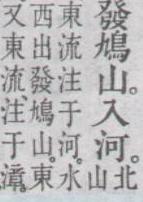 發鳩山。入河。北
山
東流注于河。水
西出發鳩山。東
又東流注于濟。